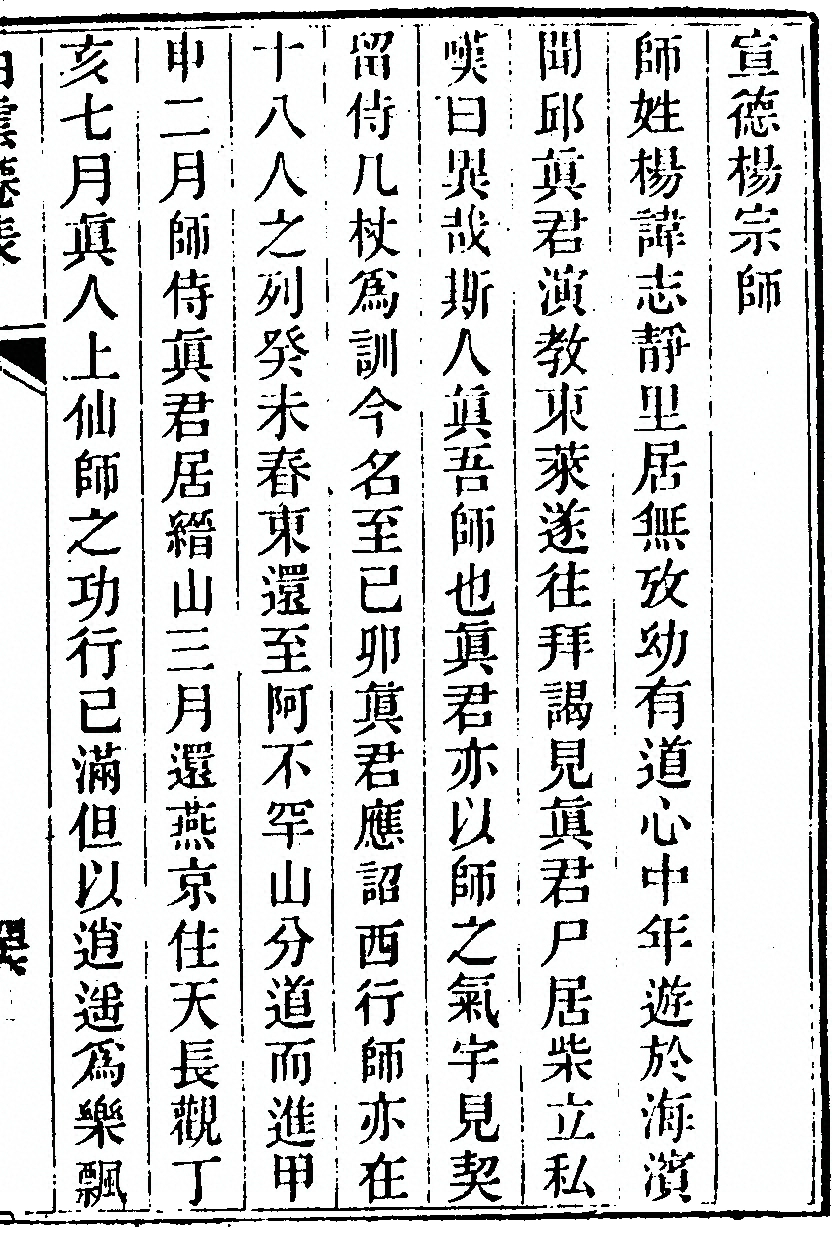 宣德楊宗師
師姓楊諱志靜里居無攷幼有道心中年遊於海濱
聞邱眞君演教東萊遂往拜謁見眞君尸居柴立私
嘆曰異哉斯人眞吾師也眞君亦以師之氣宇見契
留侍几杖爲訓今名至己卯眞君應詔西行師亦在
十八人之列癸未春東還至阿不罕山分道而進甲
申二月師侍眞君居縉山三月還燕京住天長觀丁
亥七月眞人上仙師之功行已滿但以逍遥爲樂飄